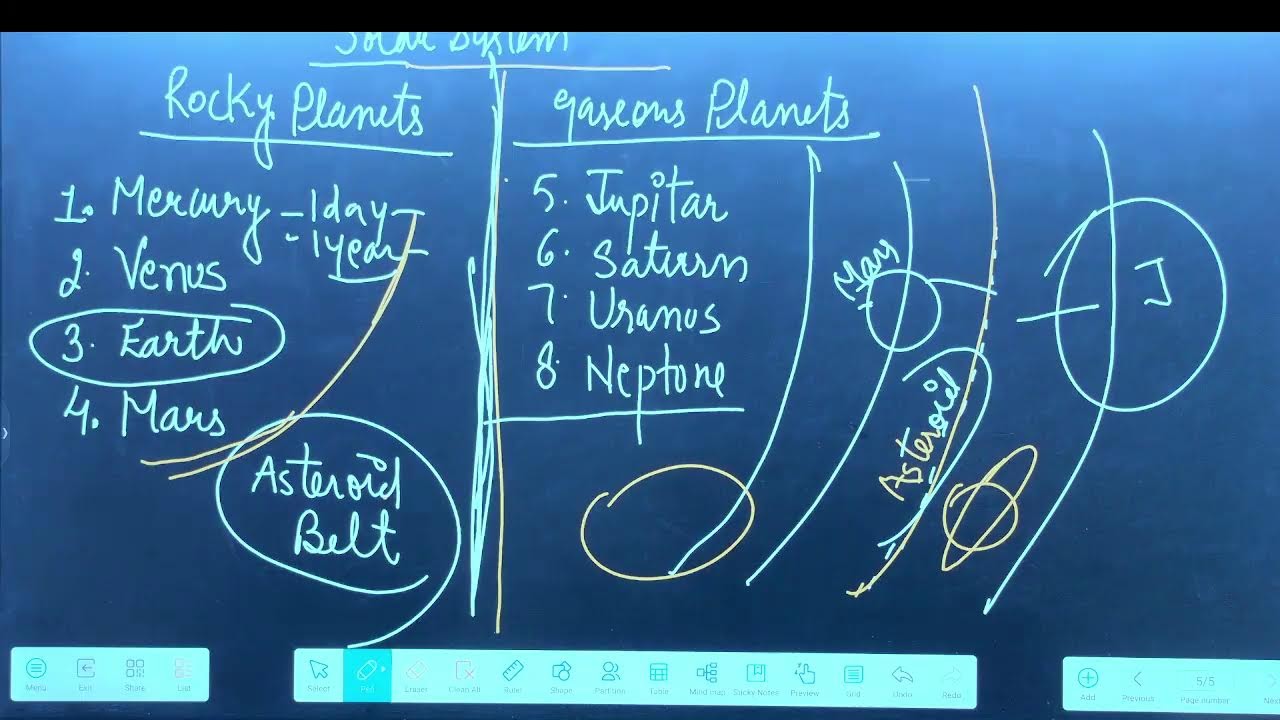 Solar System
Rocky Planets
1. Mercury - 1 day
- 1 year
2. Venus
3. Earth
4. Mars
Asteroid
Belt
gaseous Planets
5. Jupitar
6. Saturn
7. Uranus
8. Neptone
Mars
Asteroid
J
Menu
Exit
Share
List
Select
Pen
Eraser
Clean All
Ruler
Shape
Partition
Table
Mind map
Sticky Notes
Preview
Grid
Undo
Redo
Add
Previous
5/5
Page number
Next